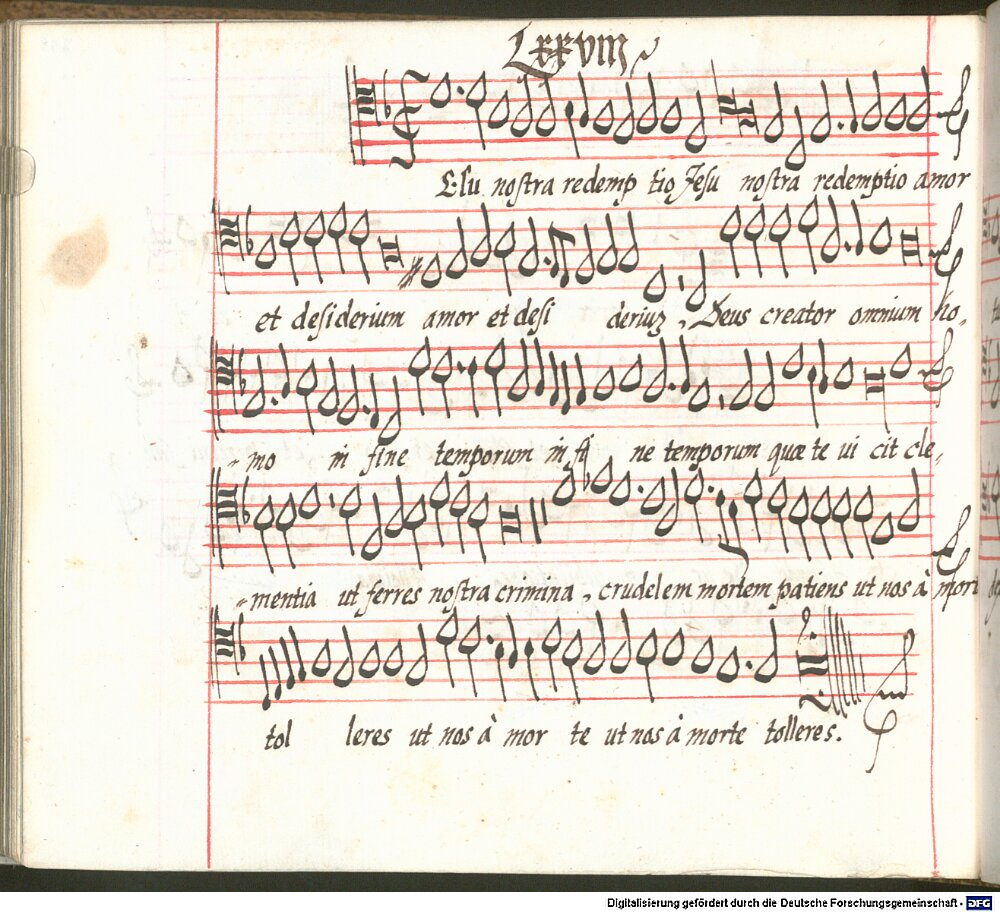 LXXVIII
E.su nostra redemp tio Jesu nostra redemptio amor
et desiderium amor et desi deriuz, Deus creator omnium ho-
-mo in fine temporum in fi ne temporum quæ te ui cit cle-
-mentia ut ferres nostra crimina, crudelem mortem patiens ut nos à mori
tol leres ut nos à mor te ut nos à morte tolleres.
Digitalisierung gefördert durch die Deutsche Forschungsgemeinschaft - DFG